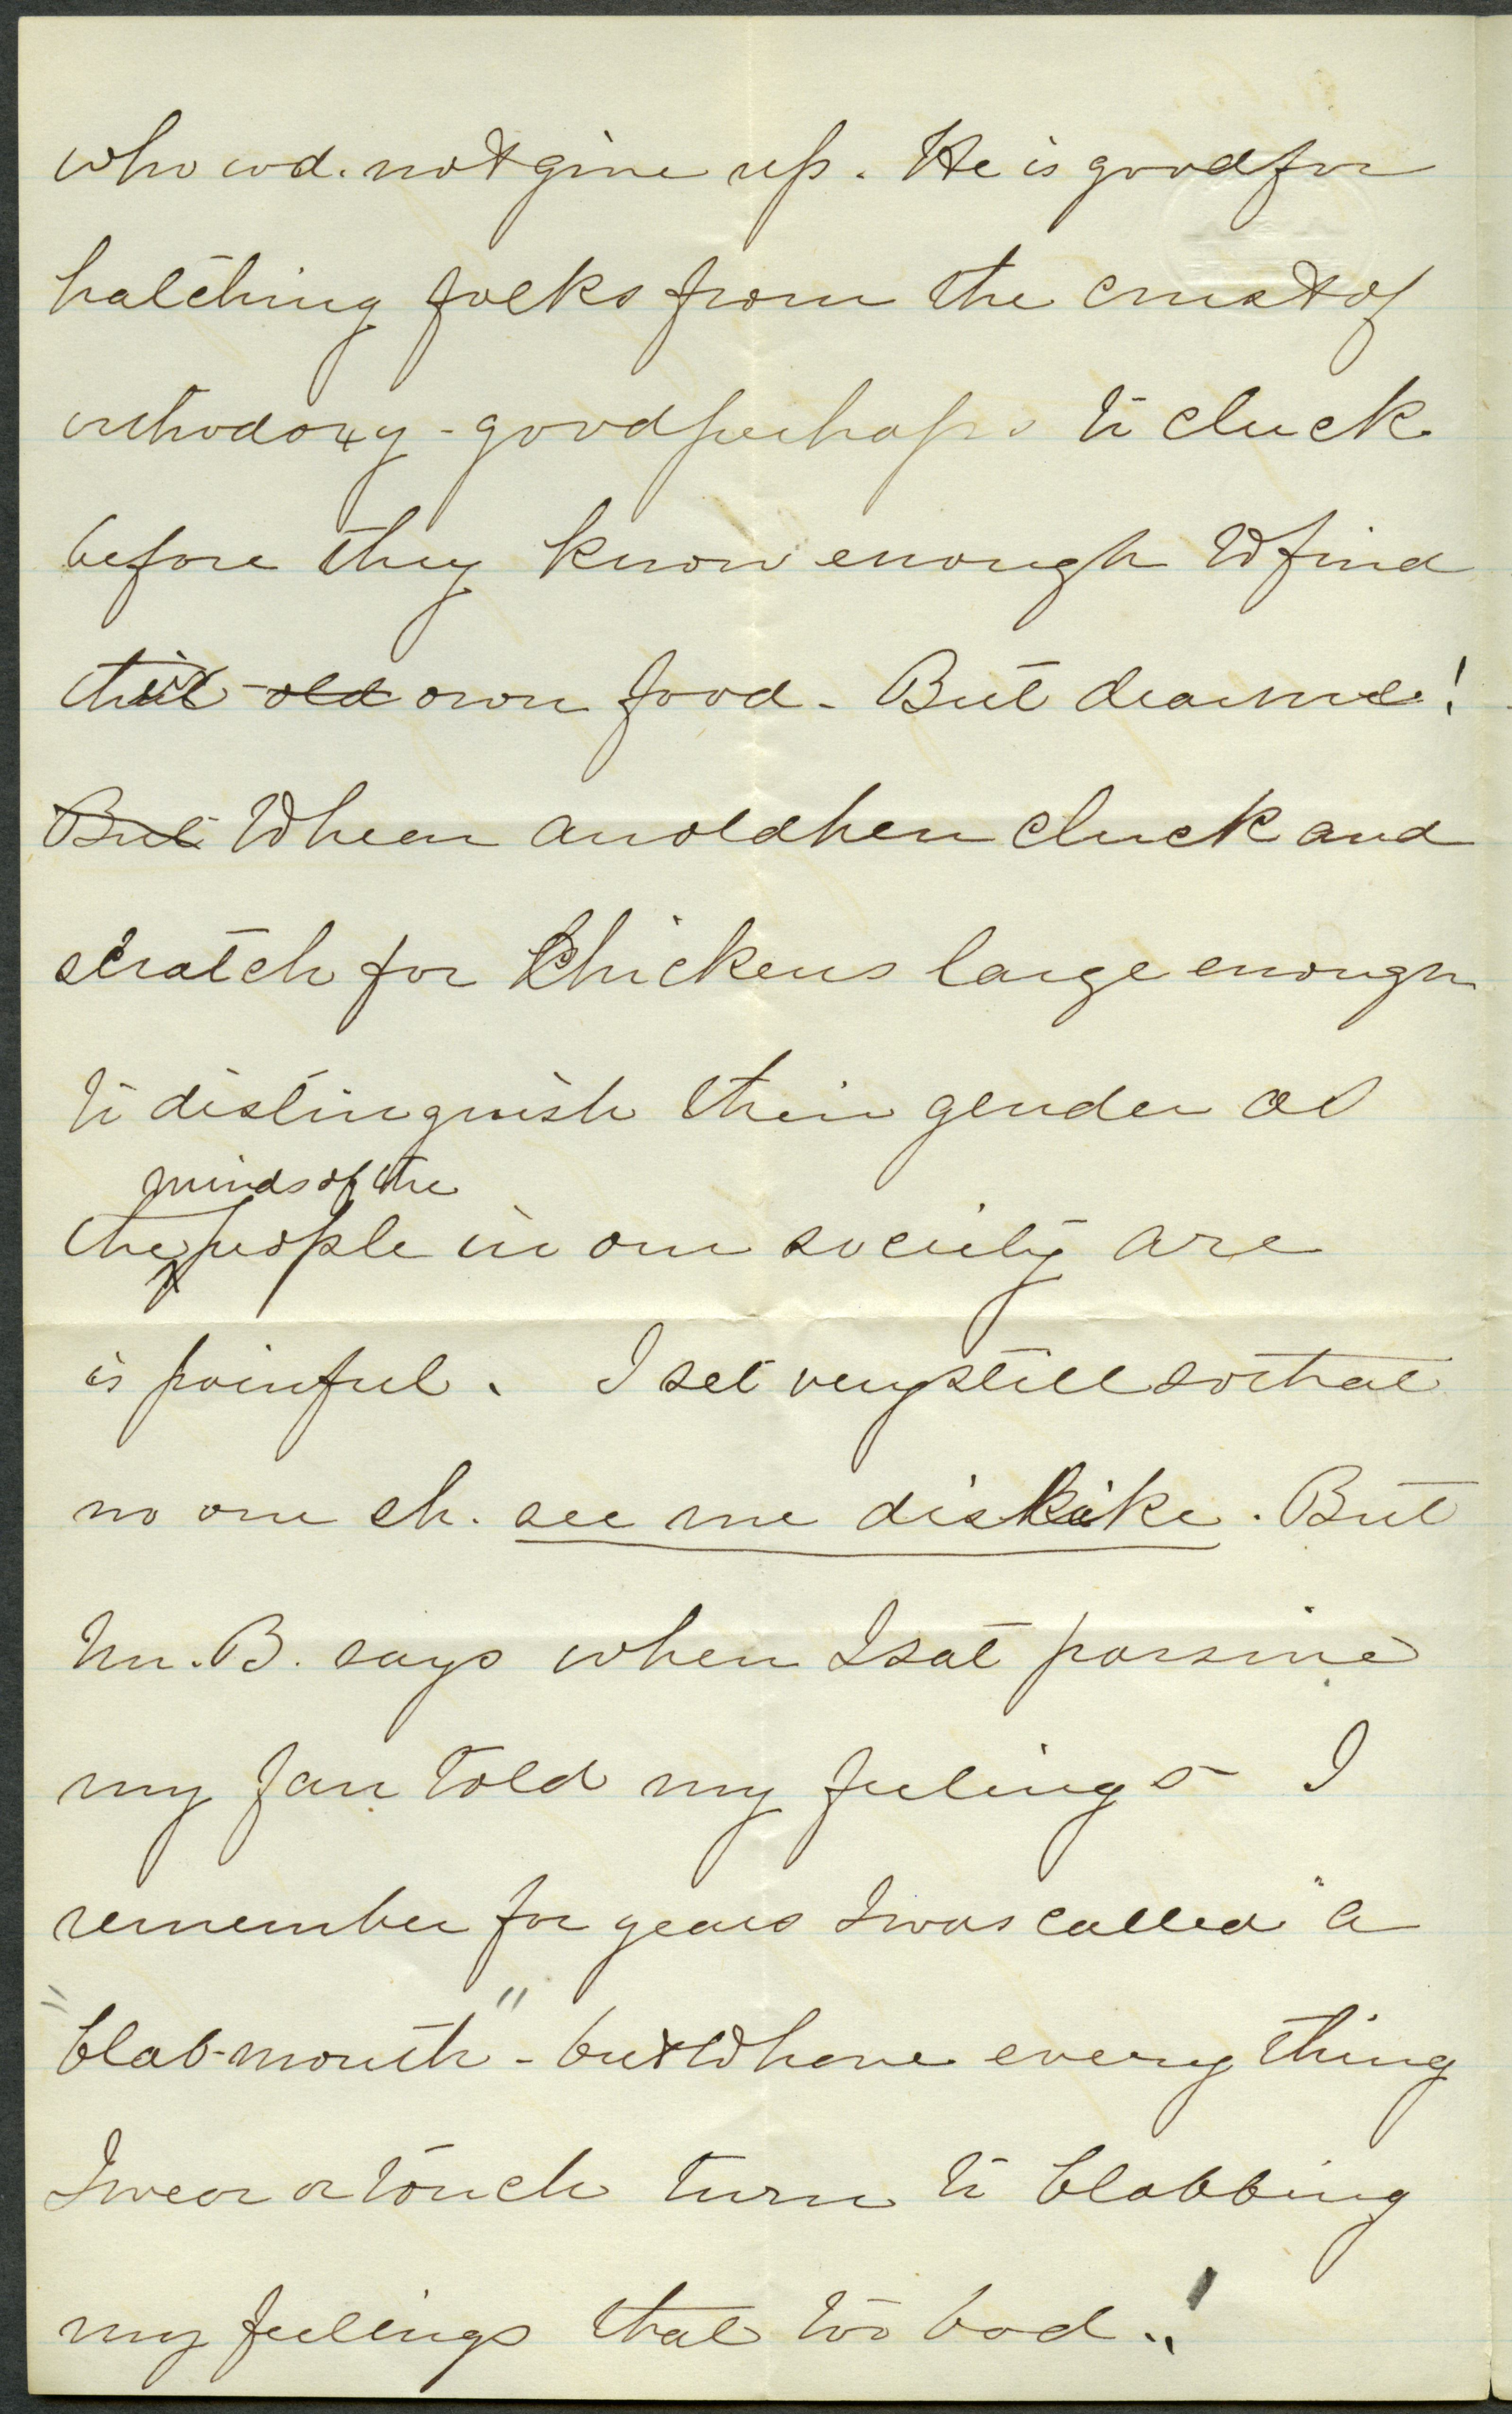 who wd. not give up. He is good for
hatching folks from the crust of
orthodoxy - good perhaps to cluck
before they know enough to find
their old own food - But dear me!
But To hear an old hen cluck and
scratch for Chickens large enough
to distinguish their gender as
minds of the
the people in our society are
is painful. I set very still so that
no one sh. see me dislike. But
Mr. B. says when I sat passive
my fan told my feelings - I
remember for years I was called "a
"blab-mouth" - but to have every thing
I wear or touch turn to blabbing
my feelings that too bad.!